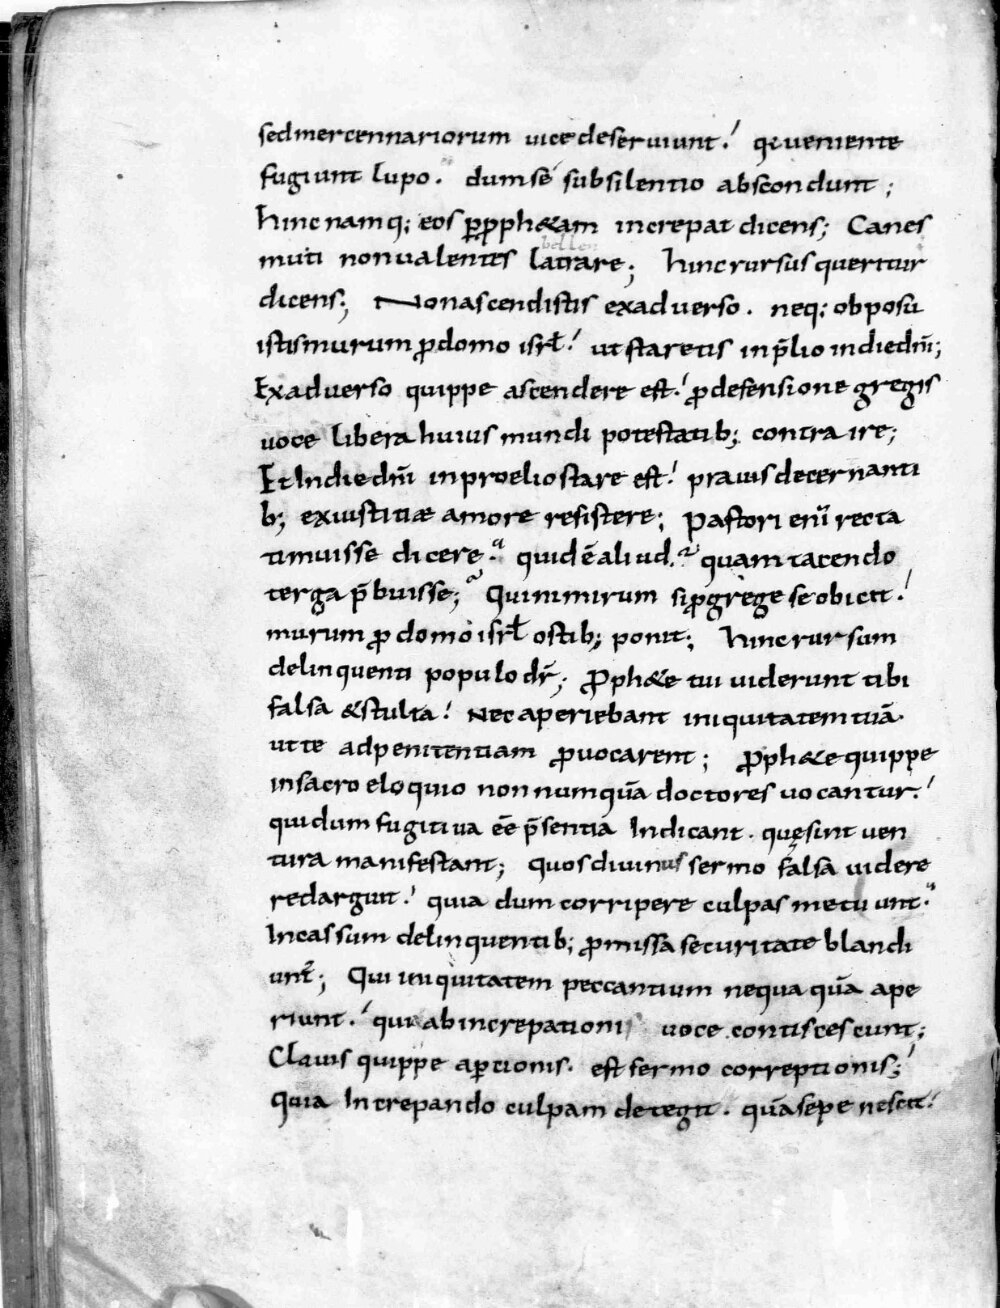 sed mercennariorum vice deserviunt! qi veniente
fugiunt lupo. dum se sub silentio abscondunt;
hinc namq; eos p̲p̲ph&am increpat dicens; Canes
bellen
muti non valentes latrare; hinc rursus queritur
dicens; Non ascendistis ex adverso. neq; obposu
istis murum ꝓ domo isrł! ut staretis in p̄lio in die dn̄i;
Ex adverso quippe ascendere est! ꝓ defensione gregis
voce libera huius mundi potestatib; contra ire;
Et In die dn̄i in proelio stare est! pravis decernanti
b; ex iustitiæ amore resistere; Pastori enī recta
timuisse dicere. quid ē aliud. quam tacendo
terga p̄buisse; Qui nimirum si ꝓ grege se obicit!
murum ꝓ domo isrł ostib; ponit; hinc rursum
delinquenti populo dr̄; Ꝓph&e tui viderunt tibi
falsa & stulta! Nec aperiebant iniquitatem tuā.
ut te ad penitentiam ꝓvocarent; Ꝓph&e quippe
in sacro eloquio non numquā doctores vocantur!
qui dum fugitiva eē p̄sentia Indicant. quę sint ven
tura manifestant; Quos divinus sermo falsa videre
redarguit! quia dum corripere culpas metuunt.
Incassum delinquentib; ꝓmissa securitate blandi
unt̄; Qui iniquitatem peccantium nequaquā ape
riunt! qui ab increpationis voce contiscescunt;
Clavis quippe ap̲tionis. est sermo correptionis;
Quia Increpando culpam detegit. quā sepe nescit!